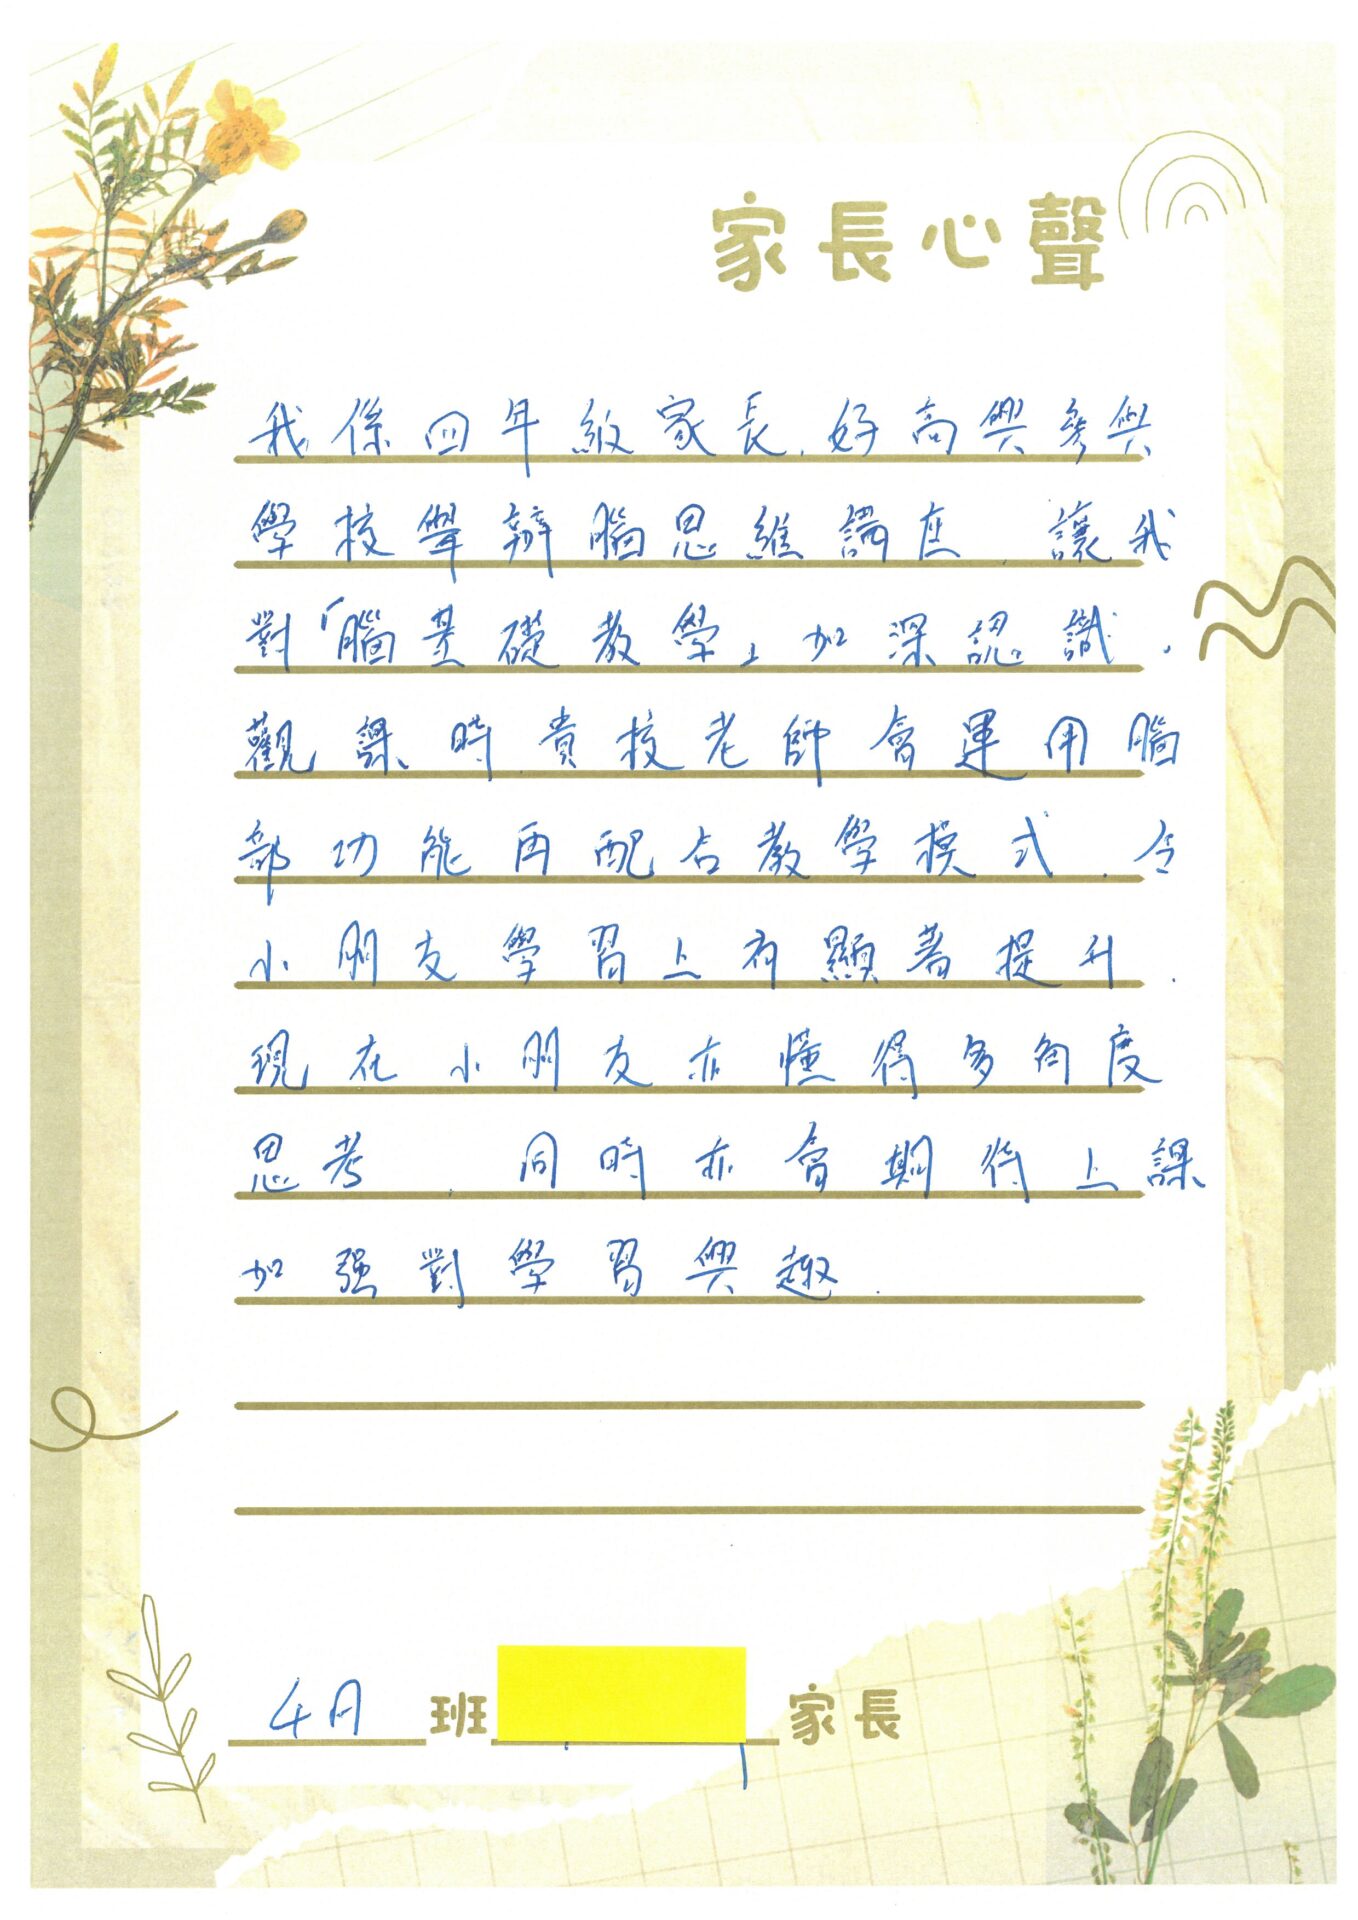 家長心聲
我係四年級家長,好高興參與
學校舉辦腦思維講座,讓我
對「腦基礎教學」加深認識,
觀課時貴校老師會運用腦
部功能再配合教學模式,令
小朋友學習上有顯著提升.
現在小朋友亦懂得多角度
思考,同時亦會期待上課
加强對學習興趣.
4月 班 家長